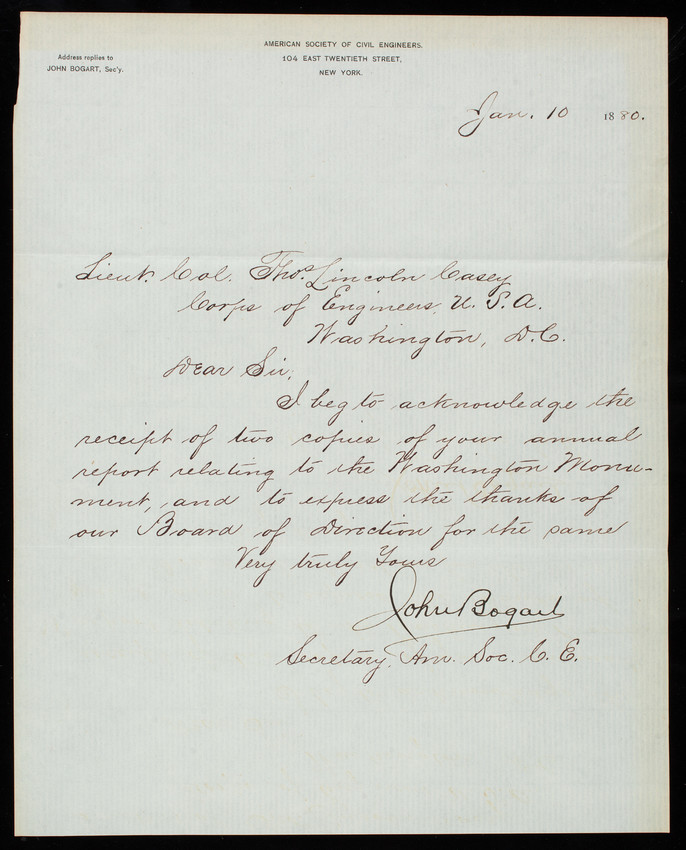 AMERICAN SOCIETY OF CIVIL ENGINEERS.
104 EAST TWENTIETH STREET,
NEW YORK.
Address replies to
JOHN BOGART, Sec'y.
Jan. 10 1880.
Lieut. Col. Thos. Lincoln Casey
Corps of Engineers, U. S. A.
Washington, D.C.
Dear Sir,
I beg to acknowledge the
receipt of two copies of your annual
report relating to the Washington Monu-
ment, and to express the thanks of
our Board of Direction for the same
Very truly Yours
John Bogart
Secretary, Am. Soc. C. E.